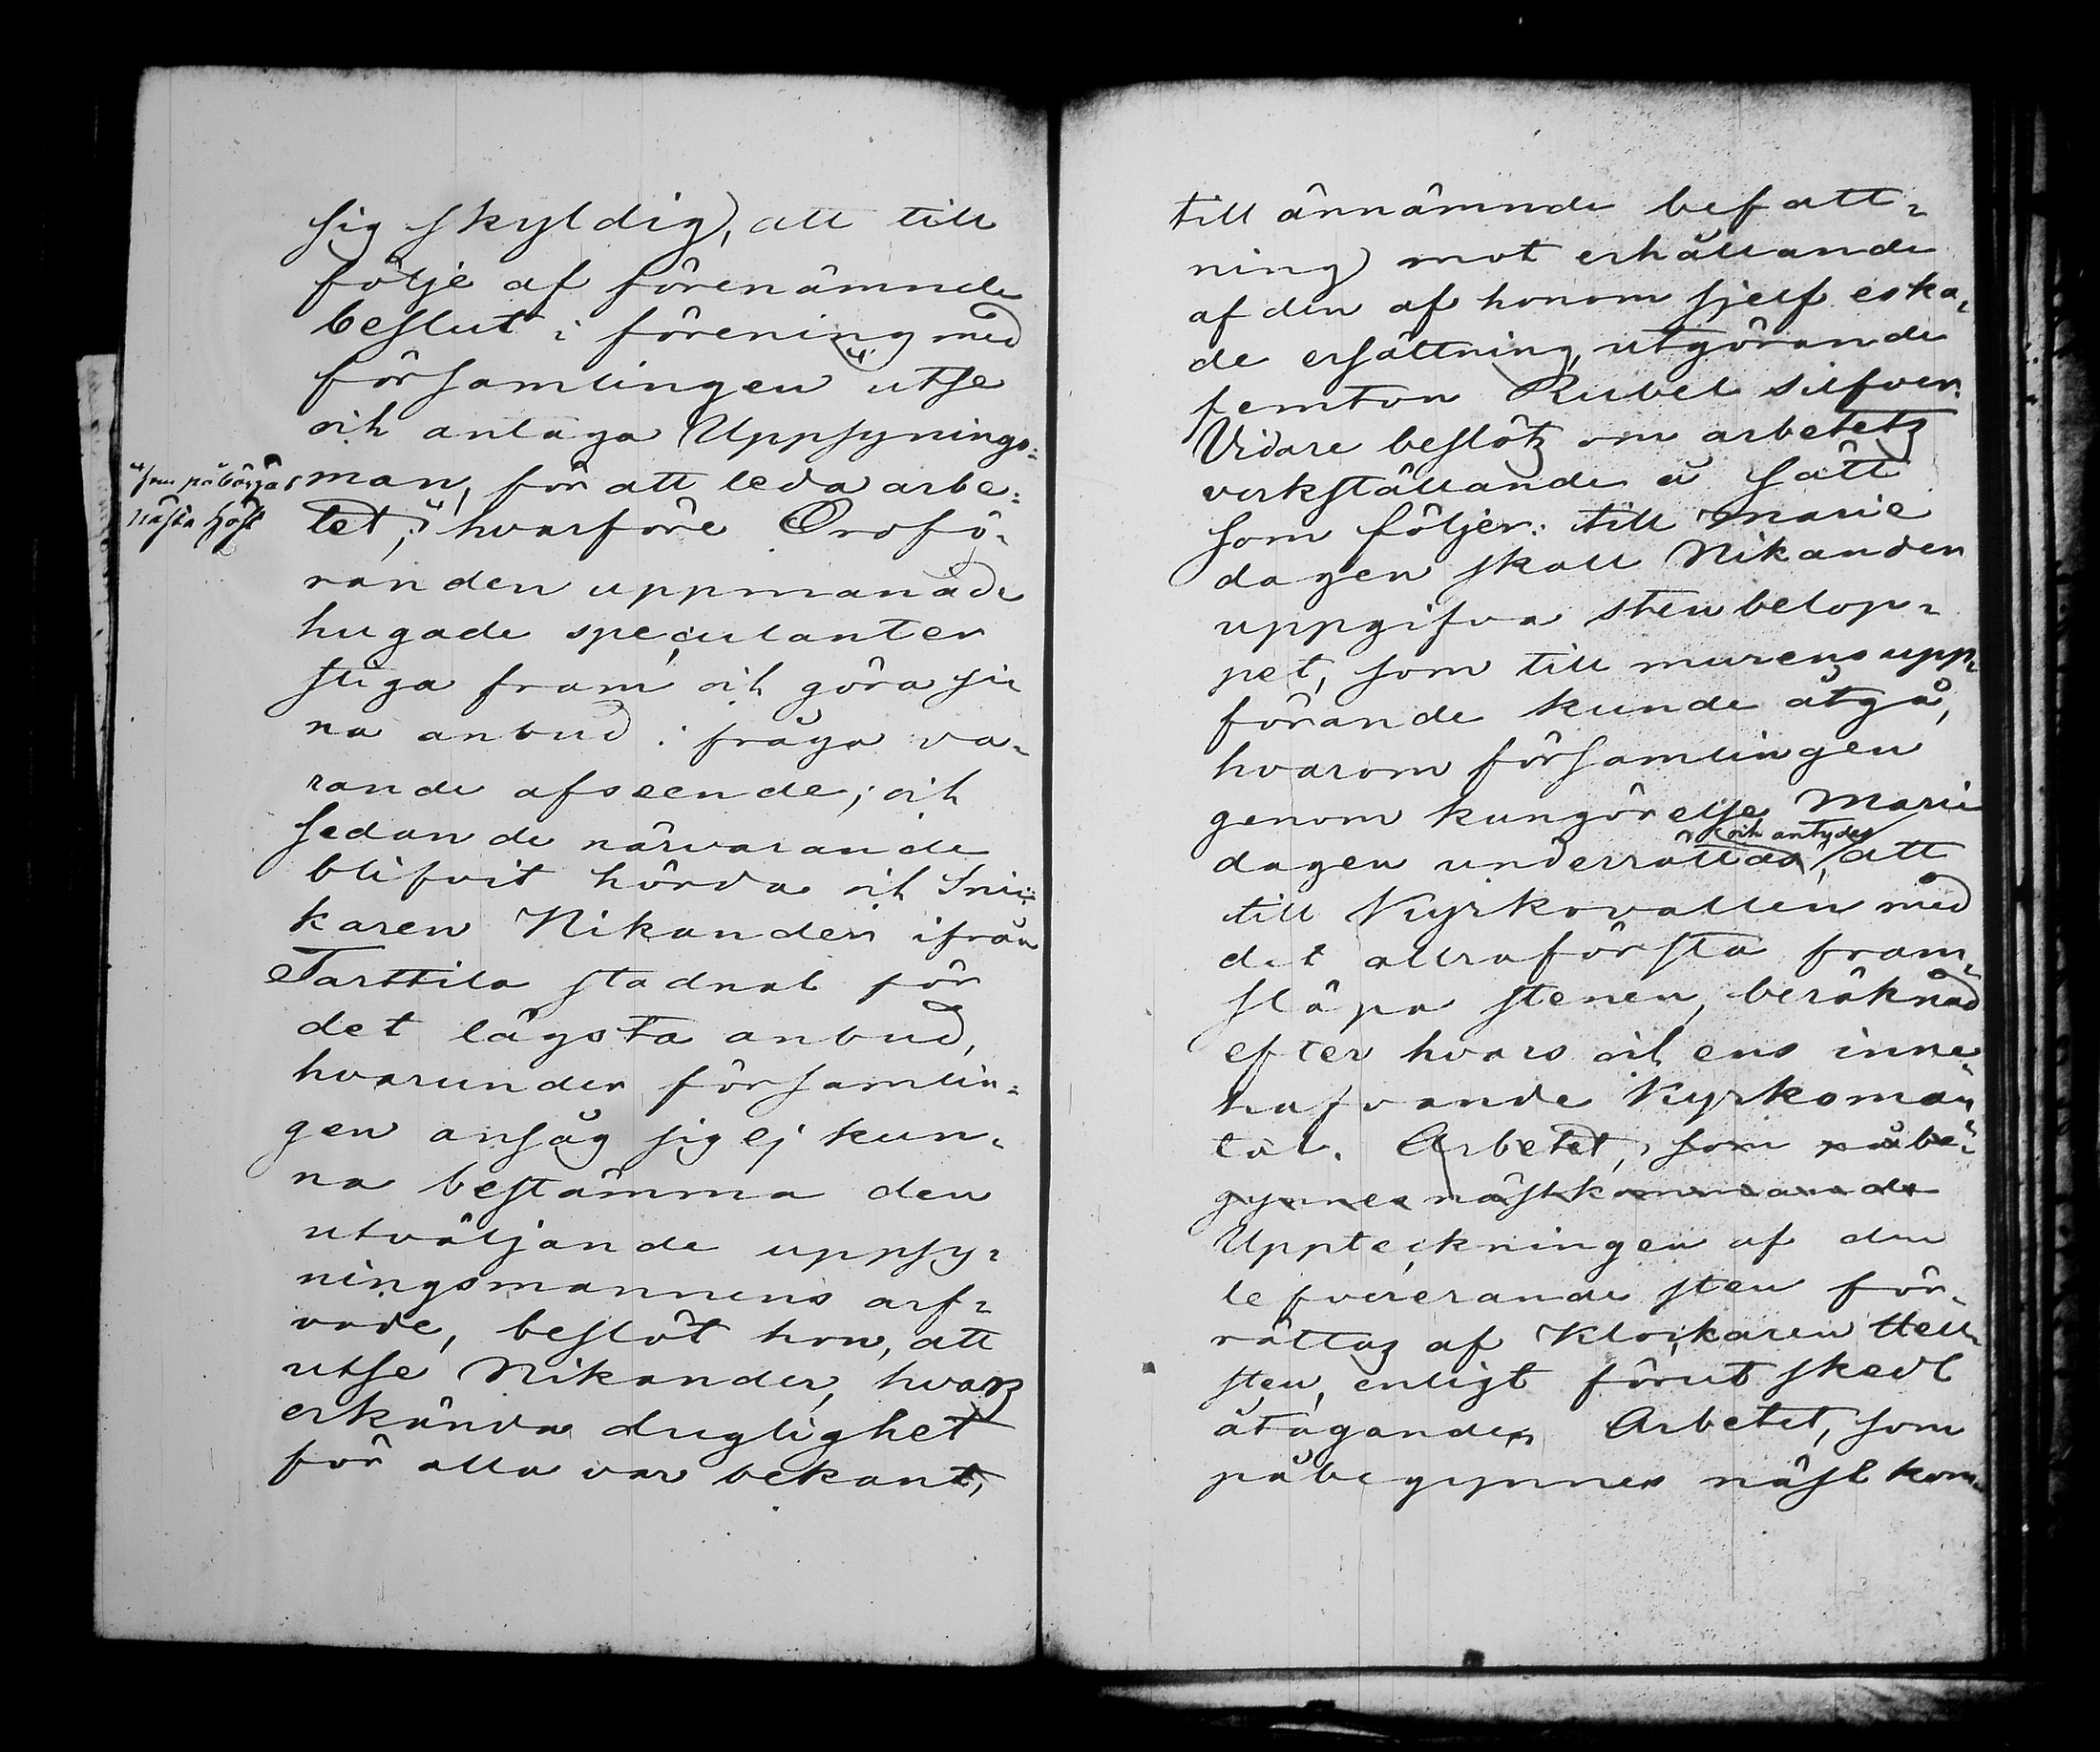 sig skyldig, att till
följe af förenämnde
beslut i förening med
församlingen utse
och antaga Uppsynings=
man, för att leda arbe=
tet, hvarföre Ordfö-
randen uppmanade
hugade speculanter
stiga fram och göra si
na anbud i fråga va-
rande afseende; och
sedan de närvarande
blifvit hörda och Snic-
karen Nikander ifrån
Tarttila stadnat för
det lägsta anbud,
hvarunder församlin-
gen ansåg sig ej kun-
na bestämma den
utväljande uppsy-
ningsmannens arf-
vode, beslöt hon, att
utse Nikander, hvars
erkända duglighet
för alla var bekant,
"som påbörjas
nästa Höst
till ännämnde befatt-
ning mot erhållande
af den af honom sjelf eska-
de ersättning, utgörande
femton Rubel silfver.
Vidare beslöts om arbetets
verkställande å sätt
som följer: till Marie
dagen skall Nikander
uppgifva stenbelop-
pet, som till murens upp-
förande kunde åtgå,
hvarom församlingen
genom kungörelse Marie
och antydes
dagen underrättas, att
till Kyrkovallen med
det allraförsta fram-
släpa stenen, beräknad
efter hvars och ens inne-
hafvande Kyrkoman
tal. Arbetet, som påbe-
gynnes nästkommande
Uppteckningen af den
lefvererande sten för-
rättas af Klockaren Hell-
sten, enligt förut skedt
åtagande. Arbetet, som
påbegynnes näst kom-